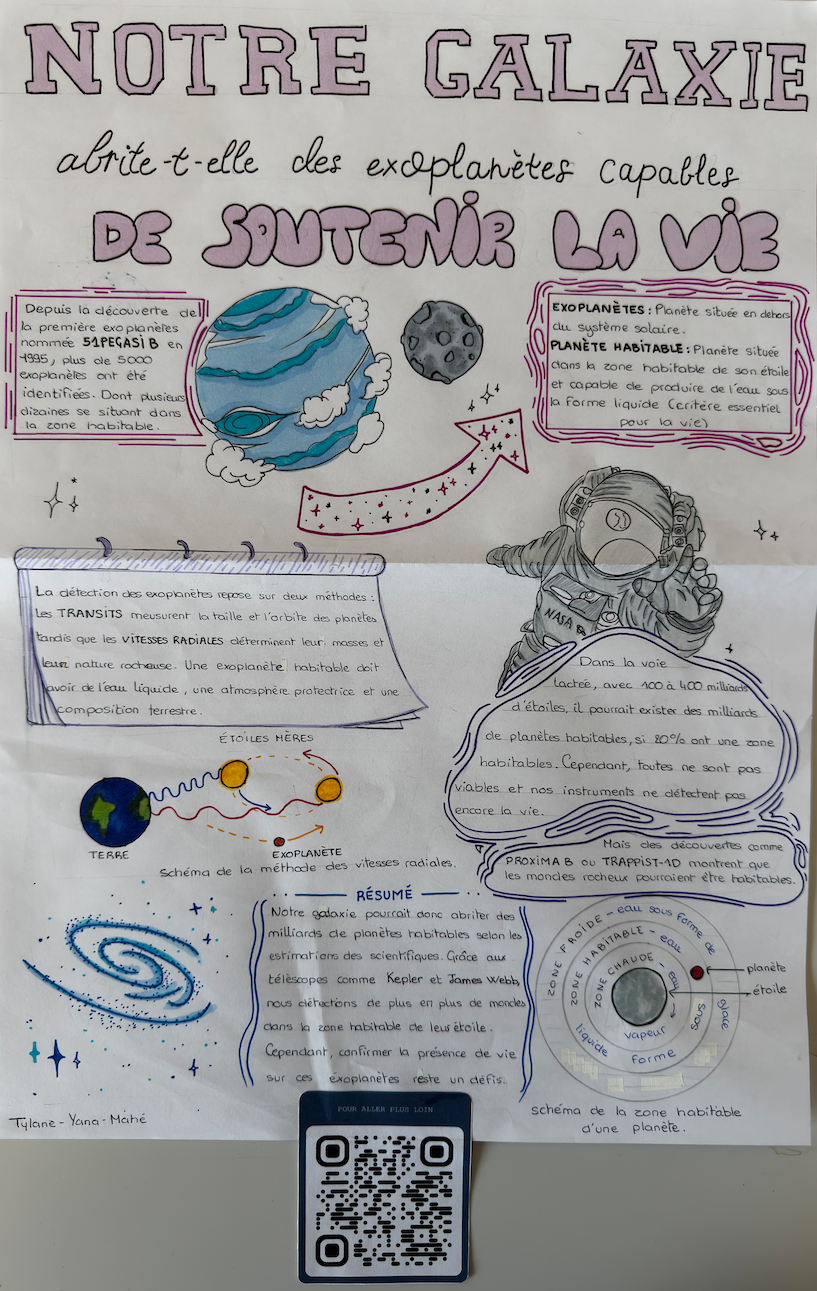 NOTRE GALAXIE
abrite-t-elle des exoplanètes capables
DE SOUTENIR LA VIE
Depuis la découverte de
la première exoplanètes
nommée 51PEGASI B en
1995, plus de 5000
exoplanètes ont été
identifiées. Dont plusieurs
dizaines se situant dans
la zone habitable.
EXOPLANÈTES : Planète située en dehors
du système solaire.
PLANÈTE HABITABLE : Planète située
dans la zone habitable de son étoile
et capable de produire de l'eau sous
la forme liquide (critère essentiel
pour la vie)
NASA
La détection des exoplanètes repose sur deux méthodes :
Les TRANSITS meusurent la taille et l'orbite des planètes
tandis que les VITESSES RADIALES déterminent leur masses et
leur nature rocheuse. Une exoplanète habitable doit
avoir de l'eau liquide, une atmosphère protectrice et une
composition terrestre.
Dans la voie
lactée, avec 100 à 400 milliards
d'étoiles, il pourrait exister des milliards
de planètes habitables, si 20% ont une zone
habitables. Cependant, toutes ne sont pas
viables et nos instruments ne détectent pas
encore la vie.
ÉTOILES MÈRES
TERRE
EXOPLANÈTE
Schéma de la méthode des vitesses radiales.
Mais des découvertes comme
PROXIMA B ou TRAPPIST-1D montrent que
les mondes rocheux pourraient être habitables.
RÉSUMÉ
Notre galaxie pourrait donc abriter des
milliards de planètes habitables selon les
estimations des scientifiques. Grâce aux
téléscopes comme Kepler et James Webb
nous détections de plus en plus de mondes
dans la zone habitable de leur étoile.
Cependant, confirmer la présence de vie
sur ces exoplanètes reste un défis.
ZONE FROIDE - eau sous forme de glace
ZONE HABITABLE - eau sous forme liquide
ZONE CHAUDE - eau vapeur
planète
étoile
schéma de la zone habitable
d'une planète.
Tylane - Yana - Mahé
POUR ALLER PLUS LOIN